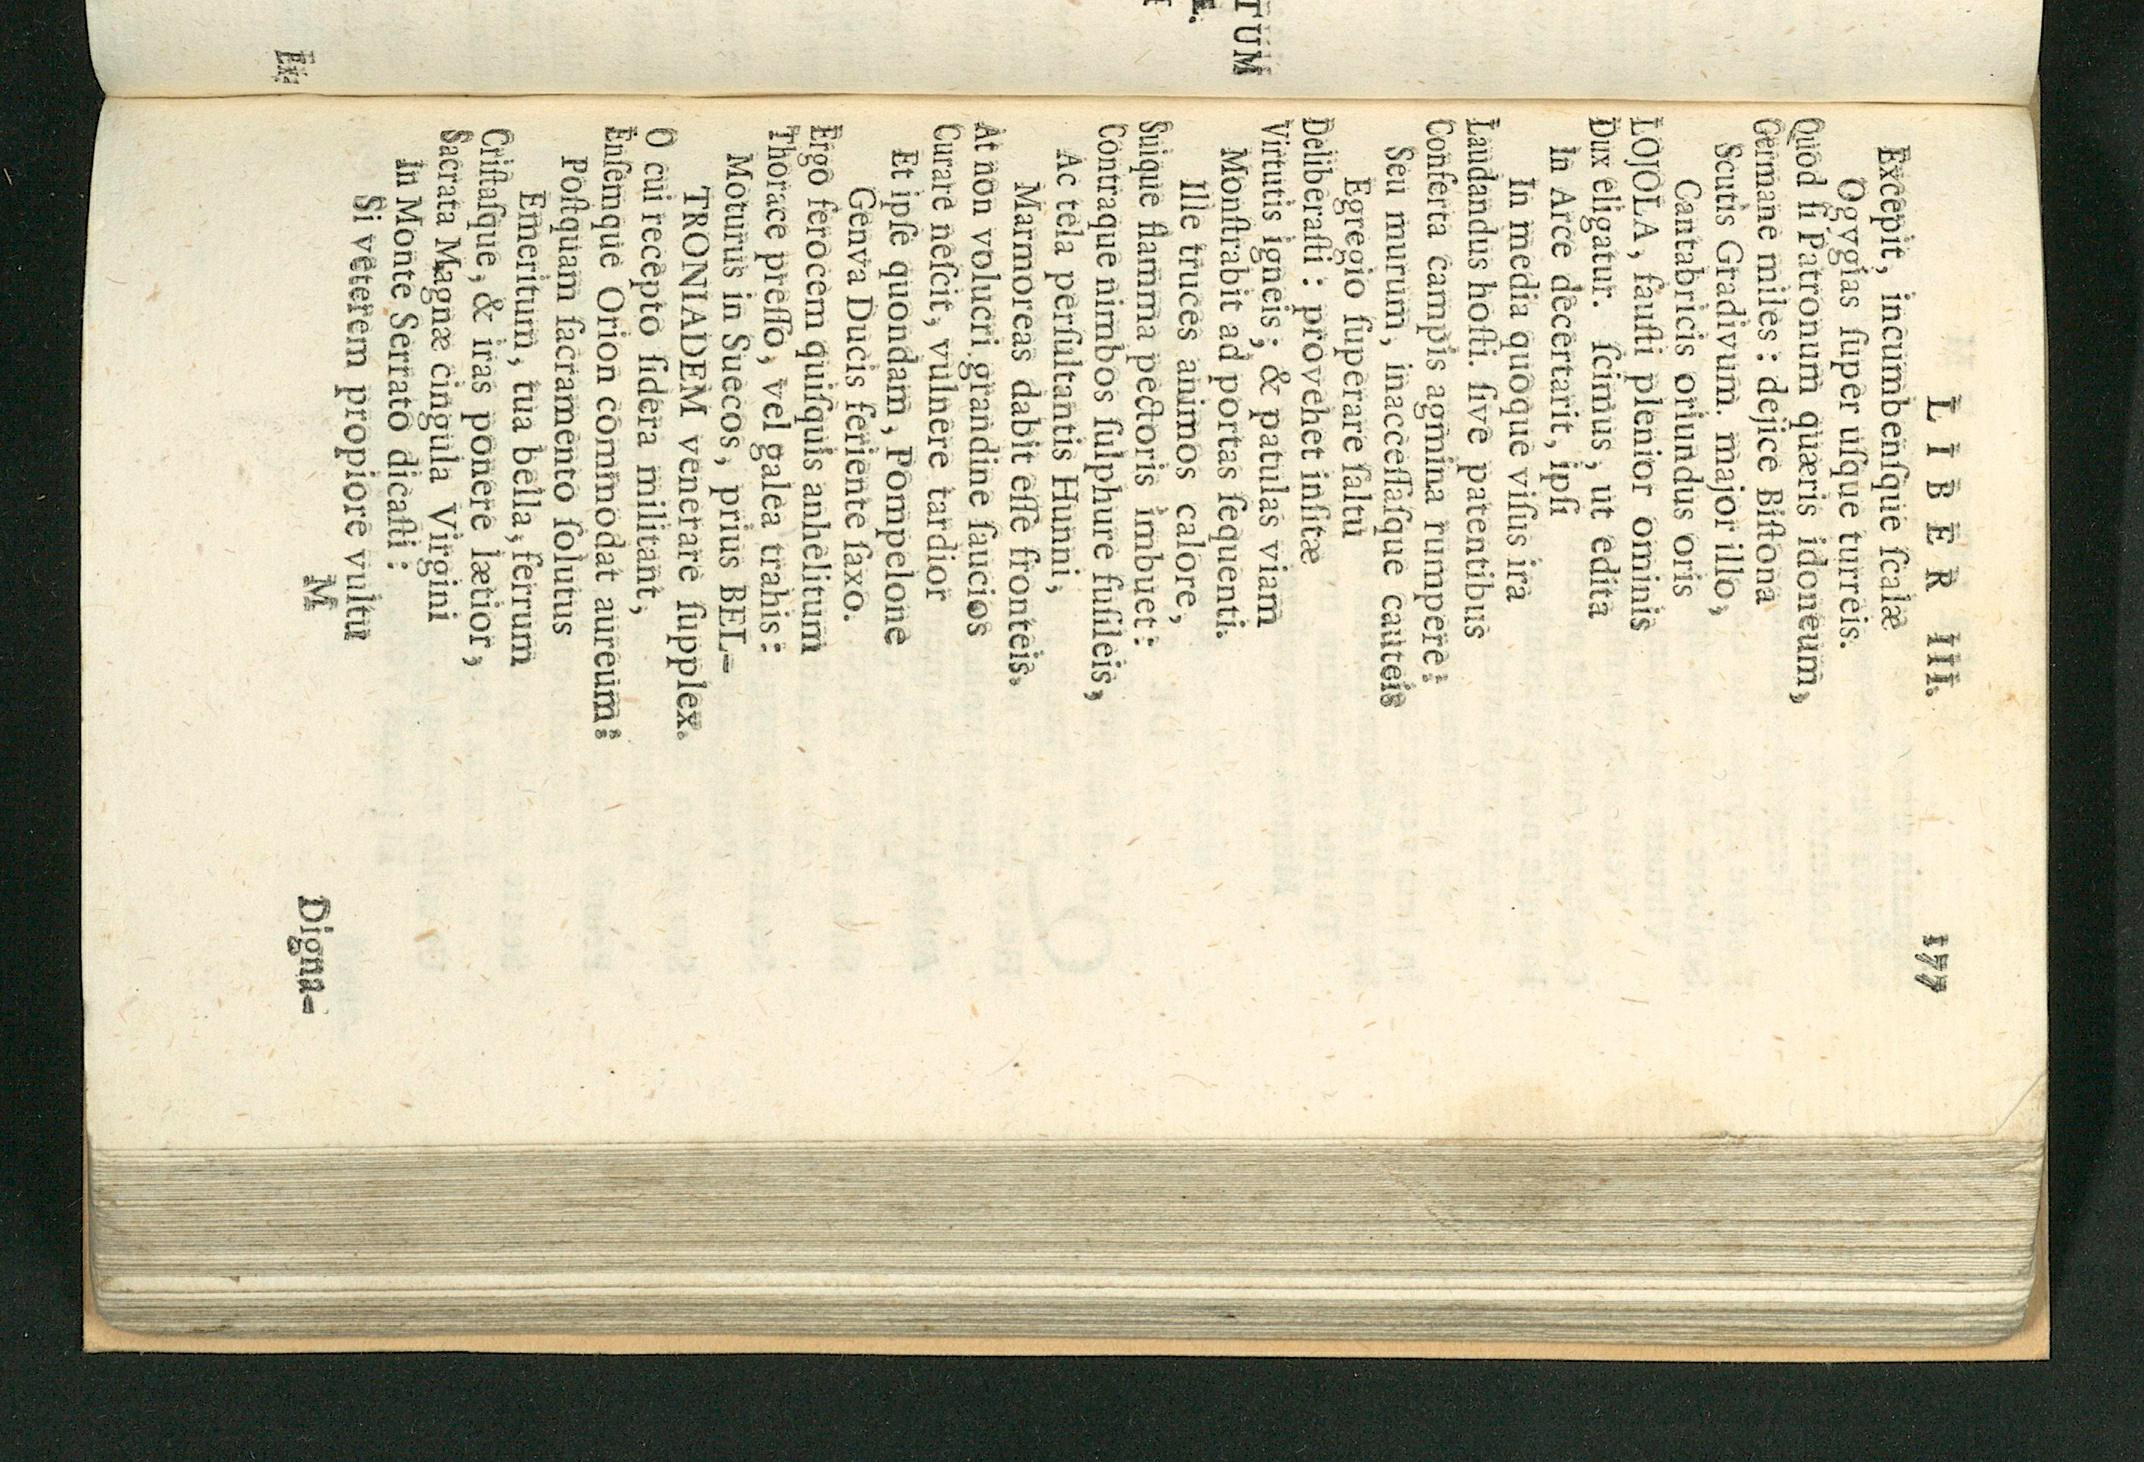 TUM
Ex-
LIBER III. 177
Excepit, incumbenſque ſcalæ
Ogygias ſuper uſque turreis.
Quod ſi Patronum quæris idoneum,
Germane miles: dejice Biſtona
Scutis Gradivum. major illo,
Cantabricis oriundus oris
LOJOLA, fauſti plenior ominis
Dux eligatur. ſcimus, ut edita
In Arce decertarit, ipſi
In media quoque viſus ira
Laudandus hoſti. ſive patentibus
Conferta campis agmina rumpere:
Seu murum, inacceſſaſque cauteis
Egregio ſuperare ſaltu
Deliberaſti: provehet inſitæ
Virtutis igneis; & patulas viam
Monſtrabit ad portas ſequenti.
Ille truces animos calore,
Suique flamma pectoris imbuet:
Contraque nimbos ſulphure fuſileis,
Ac tela perſultantis Hunni,
Marmoreas dabit eſſe fronteis.
At non volucri grandine ſaucios
Curare neſcit, vulnere tardior
Et ipſe quondam, Pompelone
Genva Ducis feriente ſaxo.
Ergo ferocem quiſquis anhelitum
Thorace preſſo, vel galea trahis:
Moturus in Suecos, prius BEL-
TRONIADEM venerare ſupplex.
O cui recepto ſidera militant,
Enſemque Orion commodat aureum:
Poſtquam ſacramento ſolutus
Emeritum, tua bella, ferrum
Criſtaſque, & iras ponere lætior,
Sacrata Magnæ cingula Virgini
In Monte Serrato dicaſti:
Si veterem propiore vultu
M Digna-